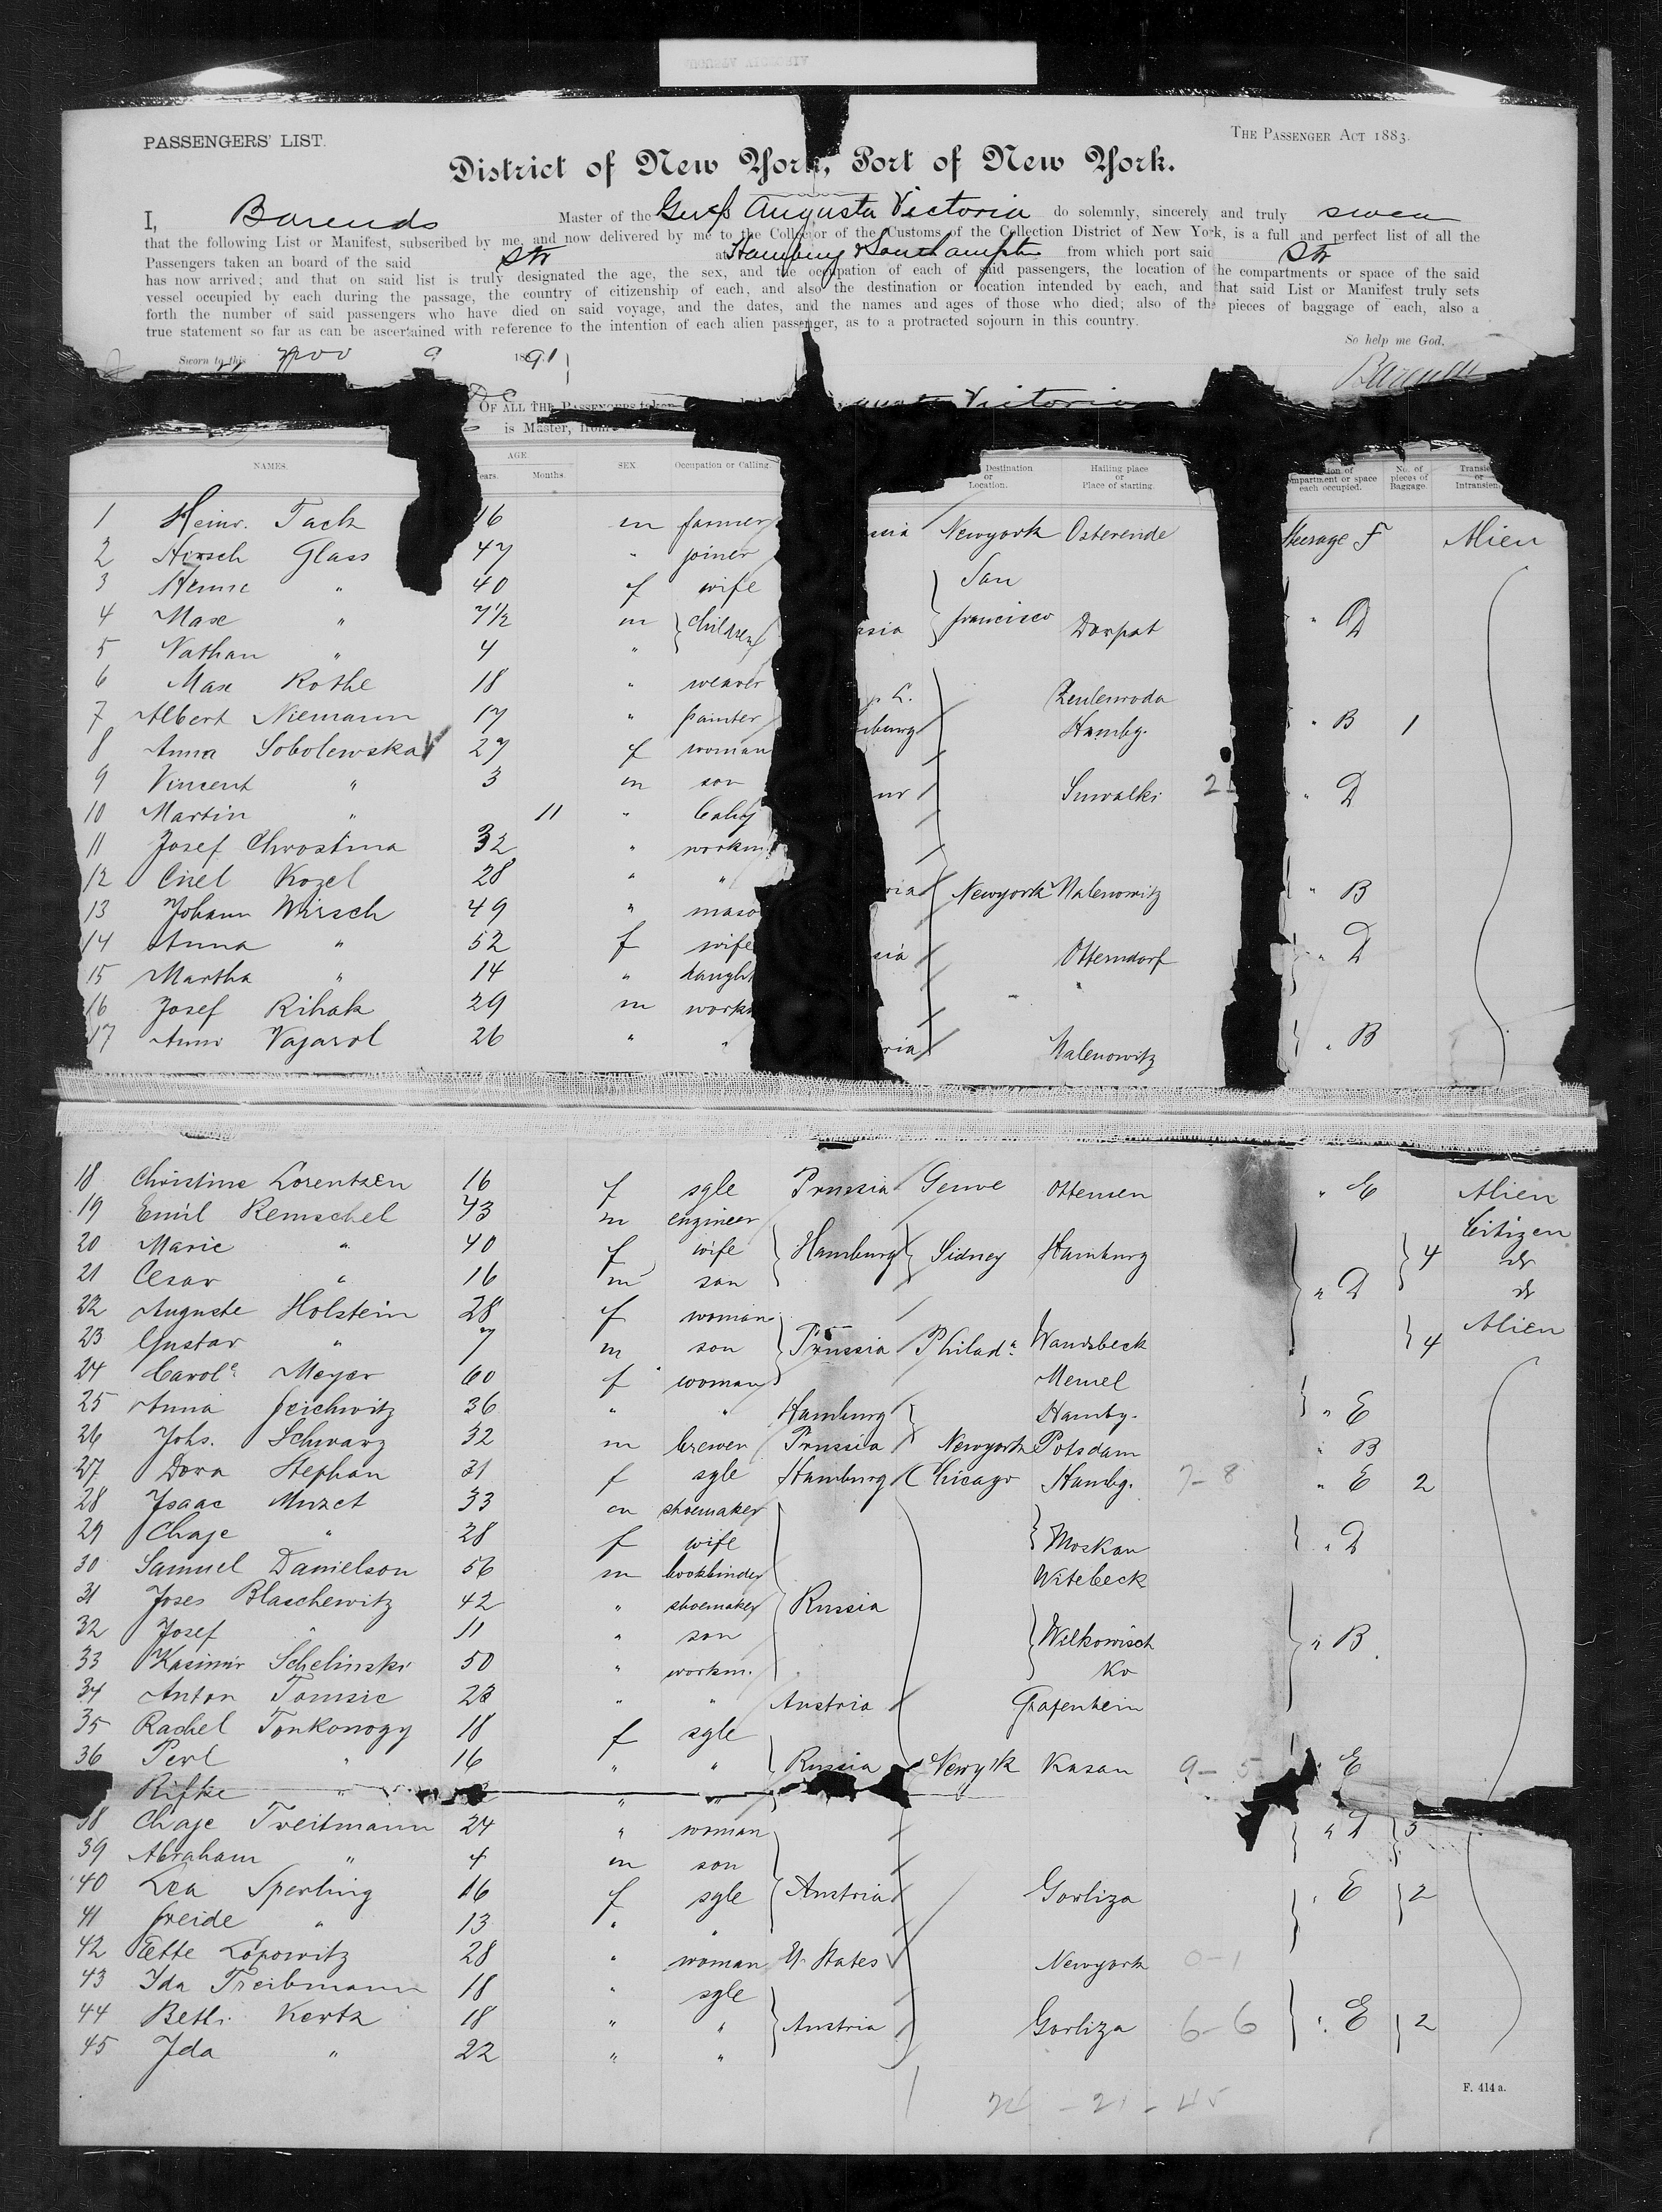 PASSENGERS' LIST.
THE PASSENGER ACT 1883.
District of New York, Port of New York.
I, Barends Master of the Augusta Victoria do solemnly, sincerely and truly swear
that the following List or Manifest, subscribed by me, and now delivered by me to the Collector of the Customs of the Collection District of New York, is a full and perfect list of all the
Passengers taken on board of the said Str at Hamburg & Southampton from which port said Str
has now arrived; and that on said list is truly designated the age, the sex, and the occupation of each of said passengers, the location of the compartments or space of the said
vessel occupied by each during the passage, the country of citizenship of each, and also the destination or location intended by each, and that said List or Manifest truly sets
forth the number of said passengers who have died on said voyage, and the dates, and the names and ages of those who died; also of the pieces of baggage of each, also a
true statement so far as can be ascertained with reference to the intention of each alien passenger, as to a protracted sojourn in this country.
So help me God,
Sworn to this Nov 9 1891
OF ALL THE PASSENGERS taken Victoria
is Master, from
NAMES. AGE. Months. SEX. Occupation or Calling. Destination or Location. Hailing place or Place of starting. each occupied. No. of pieces of Baggage.
1 Heinr. Tack 16 m farmer Newyork Osterende Steerage F Alien
2 Hirsch Glass 47 " joiner
3 " 40 f wife San
4 Max " 7½ m } children francisco Dorpat " D
5 Nathan " 4 "
6 Max Rothe 18 " weaver Zeulenroda
7 Albert Niemann 17 " painter Hambg. " B 1
8 Anna Sobolewska 27 f woman
9 Vincent " 3 m son Suwalki 2 " D
10 Martin " 11 " baby
11 Josef Chrostina 32 " workm
12 Kozel 28 " " Newyork Malenowitz " B
13 Johann Wirsch 49 " maso
14 Anna " 52 f wife Otterndorf " D
15 Martha " 14 " daught "
16 Josef Rihak 29 m work
17 Vajarol 26 " " Malenowitz " B
18 Christine Lorentzen 16 f sgle Prussia Genve Ottensen " E Alien
19 Emil Remschel 43 m engineer Citizen
20 Marie " 40 f wife } Hamburg } Sidney Hamburg } 4 do
21 Cesar " 16 m son " D do
22 Auguste Holstein 28 f woman Alien
23 Gustav " 7 m son Prussia Philada Wandsbeck } 4
24 Carole Meyer 60 f woman Memel
25 Anna 36 " " Hamburg Hambg. " E
26 Johs. Schwarz 32 m brewer Prussia Newyork Potsdam " B
27 Dora Stephan 31 f sgle Hamburg Chicago Hambg. 7-8 " E 2
28 Isaac Muzet 33 m shoemaker
29 Chaje " 28 f wife } Moskau } " D
30 Samuel Danielson 56 m bookbinder Witebeck
31 Joses Blaschewitz 42 " shoemaker Russia
32 Josef " 11 " son } Wilkowisch " B
33 Kasimir Schelinski 50 " workm. Ko
34 Anton Tomsic 23 " " Austria Grafenhein
35 Rachel Tonkonogy 18 f sgle
36 Perl " 16 " " Russia Newyk Kasan 9-5 " E
Rifke " " "
38 Chaje Treitmann 24 " woman " D } 3
39 Abraham " 4 m son
40 Lea Sperling 16 f sgle Austria Gorliza " E } 2
41 Freide " 13 " "
42 Ette Lopowitz 28 " woman U. States Newyork 0-1
43 Ida Treibmann 18 " sgle
44 Kertz 18 " " } Austria Gorliza 6-6 } " E } 2
45 Ida " 22 " "
24-21-45
F. 414 a.